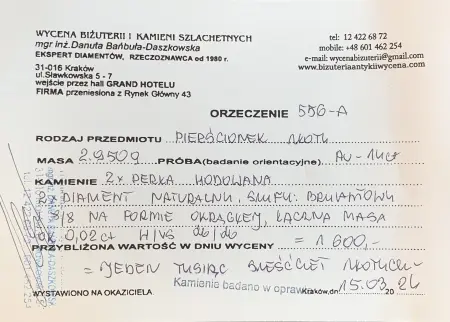 WYCENA BIŻUTERII I KAMIENI SZLACHETNYCH
mgr inż. Danuta Bańbuła-Daszkowska
EKSPERT DIAMENTÓW, RZECZOZNAWCA od 1980 r.
31-016 Kraków
ul. Sławkowska 5 - 7
wejście przez hall GRAND HOTELU
FIRMA przeniesiona z Rynek Główny 43
tel: 12 422 68 72
mobile: +48 601 462 254
e-mail: wycenabizuterii@gmail.com
www.bizuteriaantykiiwycena.com
ORZECZENIE 556-A
RODZAJ PRZEDMIOTU PIERŚCIONEK ZŁOTY
MASA 2.950g PRÓBA (badanie orientacyjne) Au-14ct
KAMIENIE 2x PERŁA HODOWANA
DIAMENT NATURALNY, SZLIFU: BRYLANTOWY
8/8 NA FORMIE OKRĄGŁEJ, ŁĄCZNA MASA
0,02ct H/VS
PRZYBLIŻONA WARTOŚĆ W DNIU WYCENY = 1 600,-
= JEDEN TYSIĄC SZEŚĆSET ZŁOTYCH
Kamienie badano w oprawie
WYSTAWIONO NA OKAZICIELA Kraków, dn. 15.03.2026